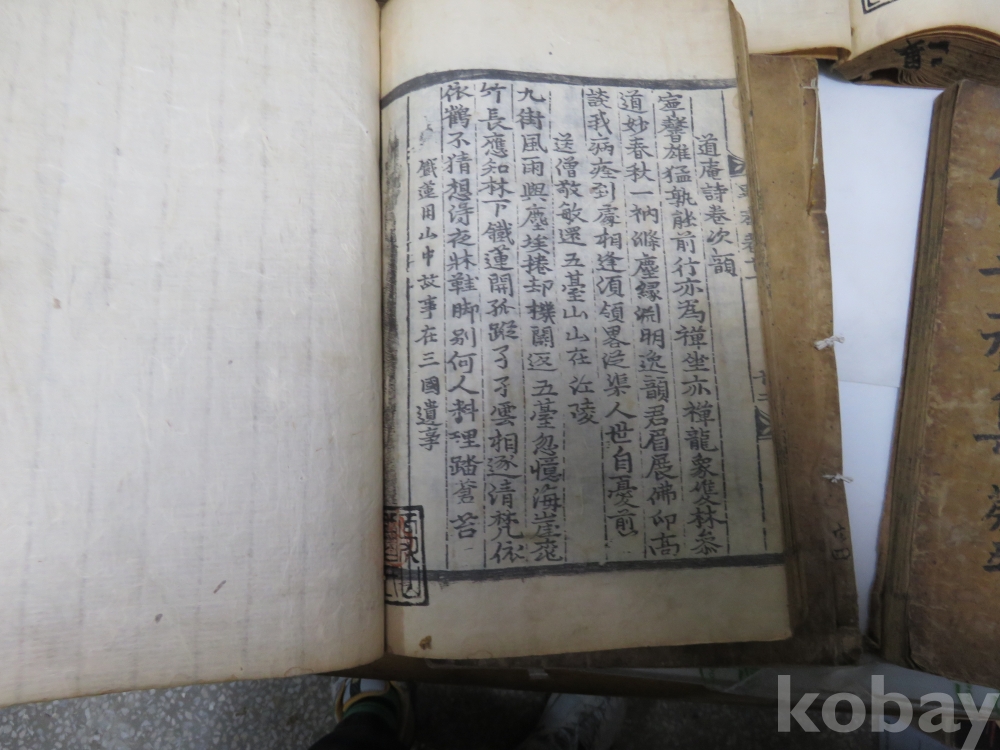 道庵詩卷次韻
寧馨雄猛孰能前行亦爲禪坐亦禪龍象雙林參
道妙春秋一衲滌塵緣淵明逸韻君眉展佛印高
談我病痊到處相逢須領畧從渠人世自憂煎
送僧敬敏還五臺山山在江陵
九街風雨與塵埃捲却樸關返五臺忽憶海崖
竹長應知林下鐵蓮開孤蹤孑孑雲相逐清梵依
依鶴不猜想得夜牀鞋脚別何人料理踏蒼苔
鐵蓮用山中故事在三國遺事
kobay